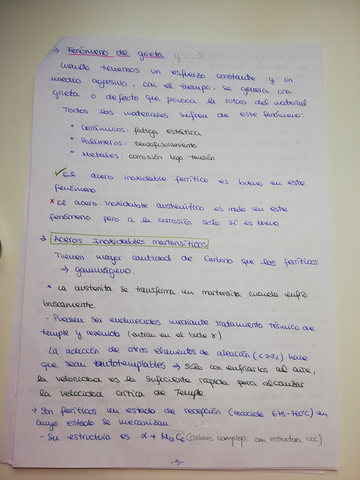 → Fenómeno de grieta y ...?
Cuando tenemos un esfuerzo constante y un
medio agresivo, con el tiempo, se genera una
grieta o defecto que provoca la rotura del material.
Todos los materiales sufren de este fenómeno:
* Cerámicos: fatiga estática
* Polímeros:
* Metales: corrosión bajo tensión
✓ El acero inoxidable ferrítico es bueno en este
fenómeno
✗ El acero inoxidable austenítico es malo en este
fenómeno pero a la corrosión solo sí es bueno
→ Aceros Inoxidables martensíticos
Tienen mayor cantidad de Carbono que los ferríticos
→ gammágeno.
* La austenita se transforma en martensita cuando enfrío
bruscamente.
- Pueden ser endurecidos mediante tratamiento térmico de
temple y revenido (entran en el bucle γ)
La adición de otros elementos de aleación (<2%) hace
que sean autotemplables → solo con enfriarlos al aire,
la velocidad es lo suficiente rápida para alcanzar
la velocidad crítica de Temple.
→ Son ferríticos en estado de recepción (recocido 675-760°C) en
cuyo estado se mecanizan.
- Su estructura es α + M₂₃C₆ (carburo complejo, con estructura
- 5 -